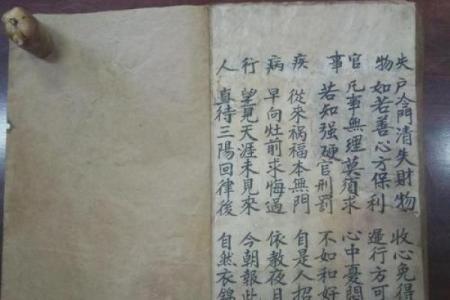 失戶冷門清失財物　收心免得
物如若善心方保利　運行方可
官凡事無理莫須求　心中憂悶
事若知強硬官刑罰　不如和好
疾從來禍福本無門　自是人招
病早向灶前求悔過　依教夜月
行望見天涯未見來　今朝報此
人直待三陽回律後　自然衣錦